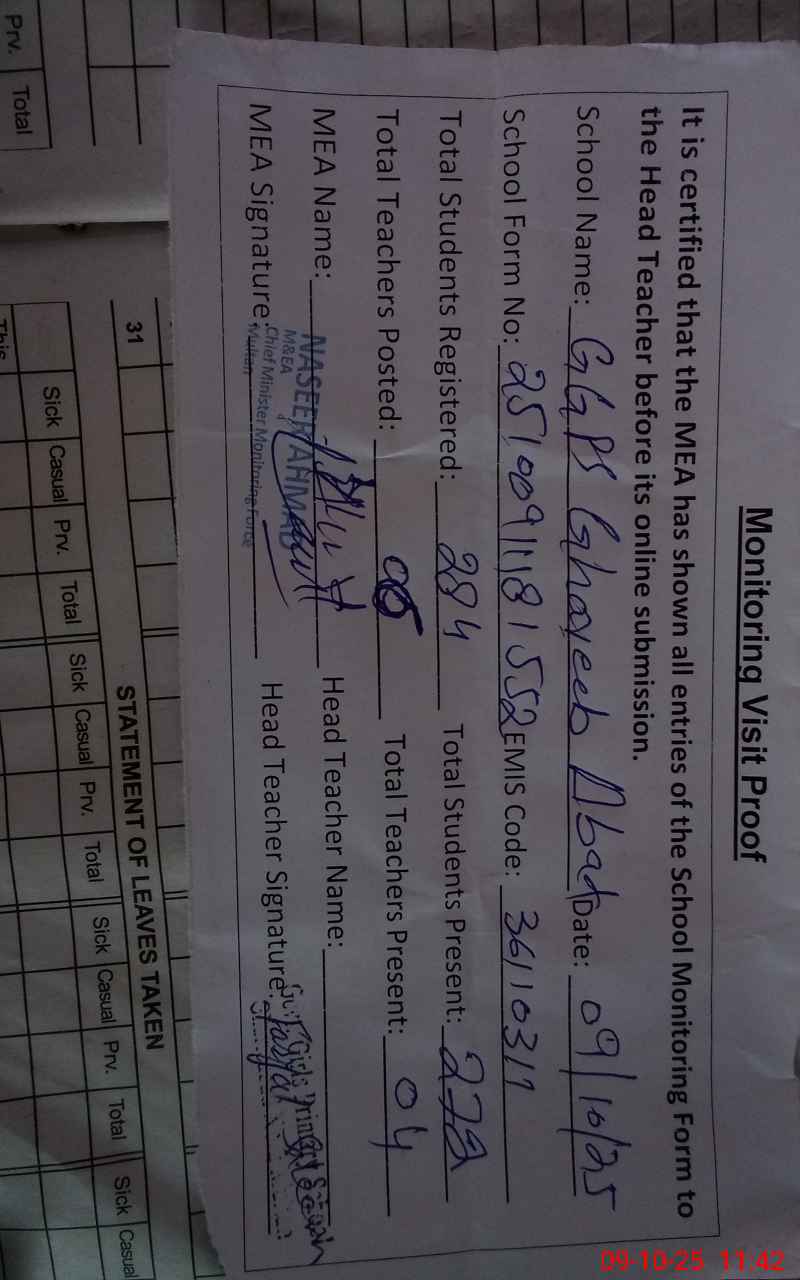 Monitoring Visit Proof
It is certified that the MEA has shown all entries of the School Monitoring Form to
the Head Teacher before its online submission.
School Name: GGPS Ghareeb Abad Date: 09/10/25
School Form No: 2510091118 1552 EMIS Code: 36110311
Total Students Registered: 284 Total Students Present: 272
Total Teachers Posted: 05 Total Teachers Present: 04
MEA Name: Head Teacher Name:
NASEER AHMAD
M&EA
Chief Minister Monitoring Force
Multan
MEA Signature: Head Teacher Signature:
Girls
Prv. Total
31
STATEMENT OF LEAVES TAKEN
Sick Casual Prv. Total Sick Casual Prv. Total Sick Casual Prv. Total Sick Casual
This
09-10-25 11:42